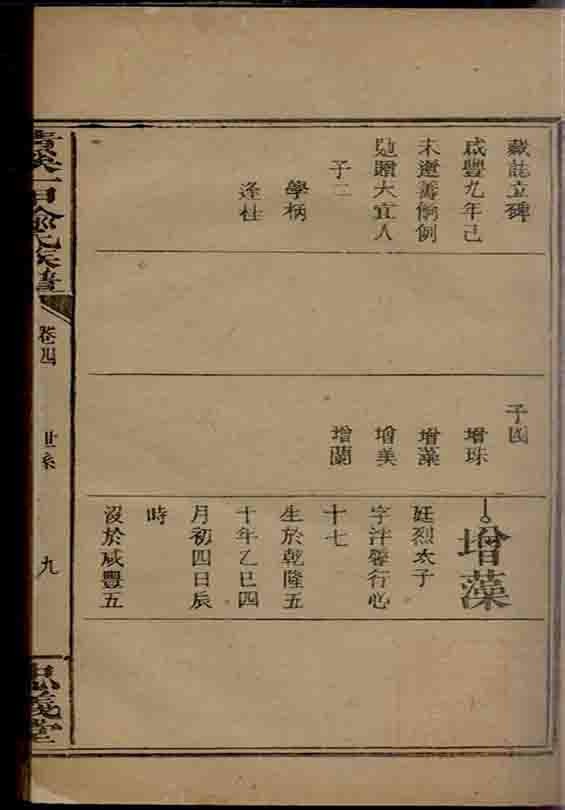 藏龍立碑
咸豐九年己
未遵籌餉例
貤贈大宜人
子二
學柄
逢桂
子四
增珠
增藻
增美
增蘭
增藻
廷烈次子
字泮馨行
十七
生於乾隆五
十年乙巳四
月初四日辰
時
沒於咸豐五
氏族譜
卷四
世系
九
忠義堂